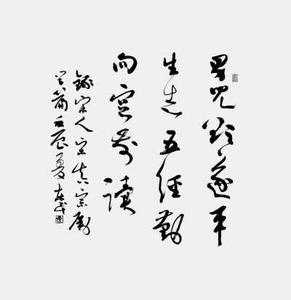 男儿欲遂平
生志五经勤
向窗前读
录宋人宋真宗劝
学篇壬辰夏